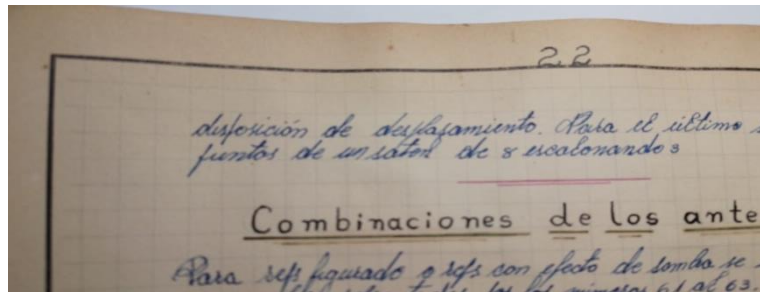 22
disposición de desplasamiento. Para el último
puntos de un satén de 8 escalonando 3
Combinaciones de los ante
Para reps figurado o reps con efecto de sombra se
los números 61 al 63.